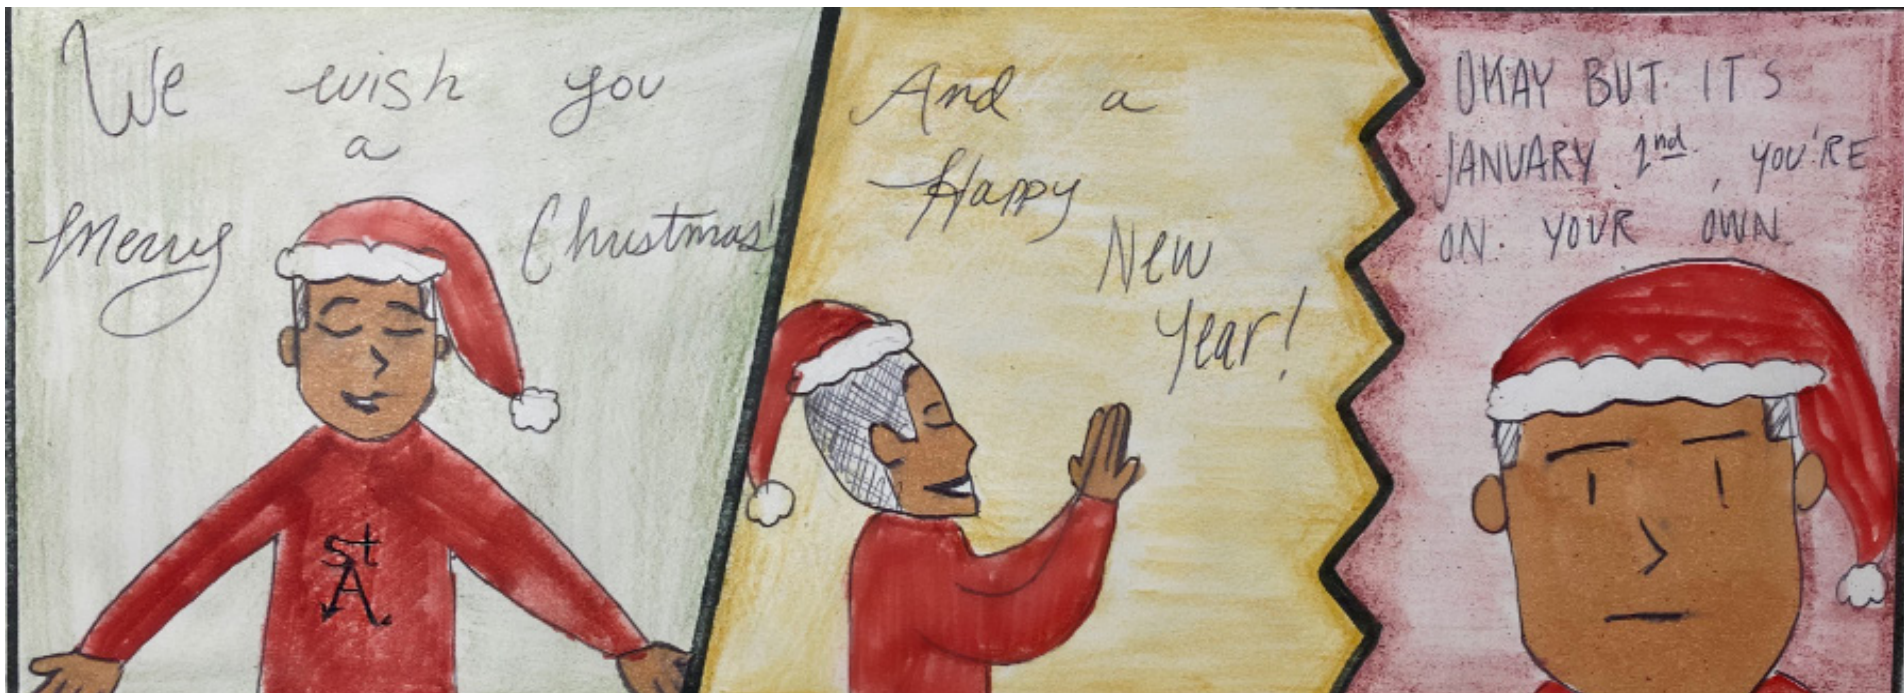 We wish you
a
Merry Christmas!
st
A
And a
Happy
New
Year!
OKAY BUT IT'S
JANUARY 2nd, YOU'RE
ON YOUR OWN.